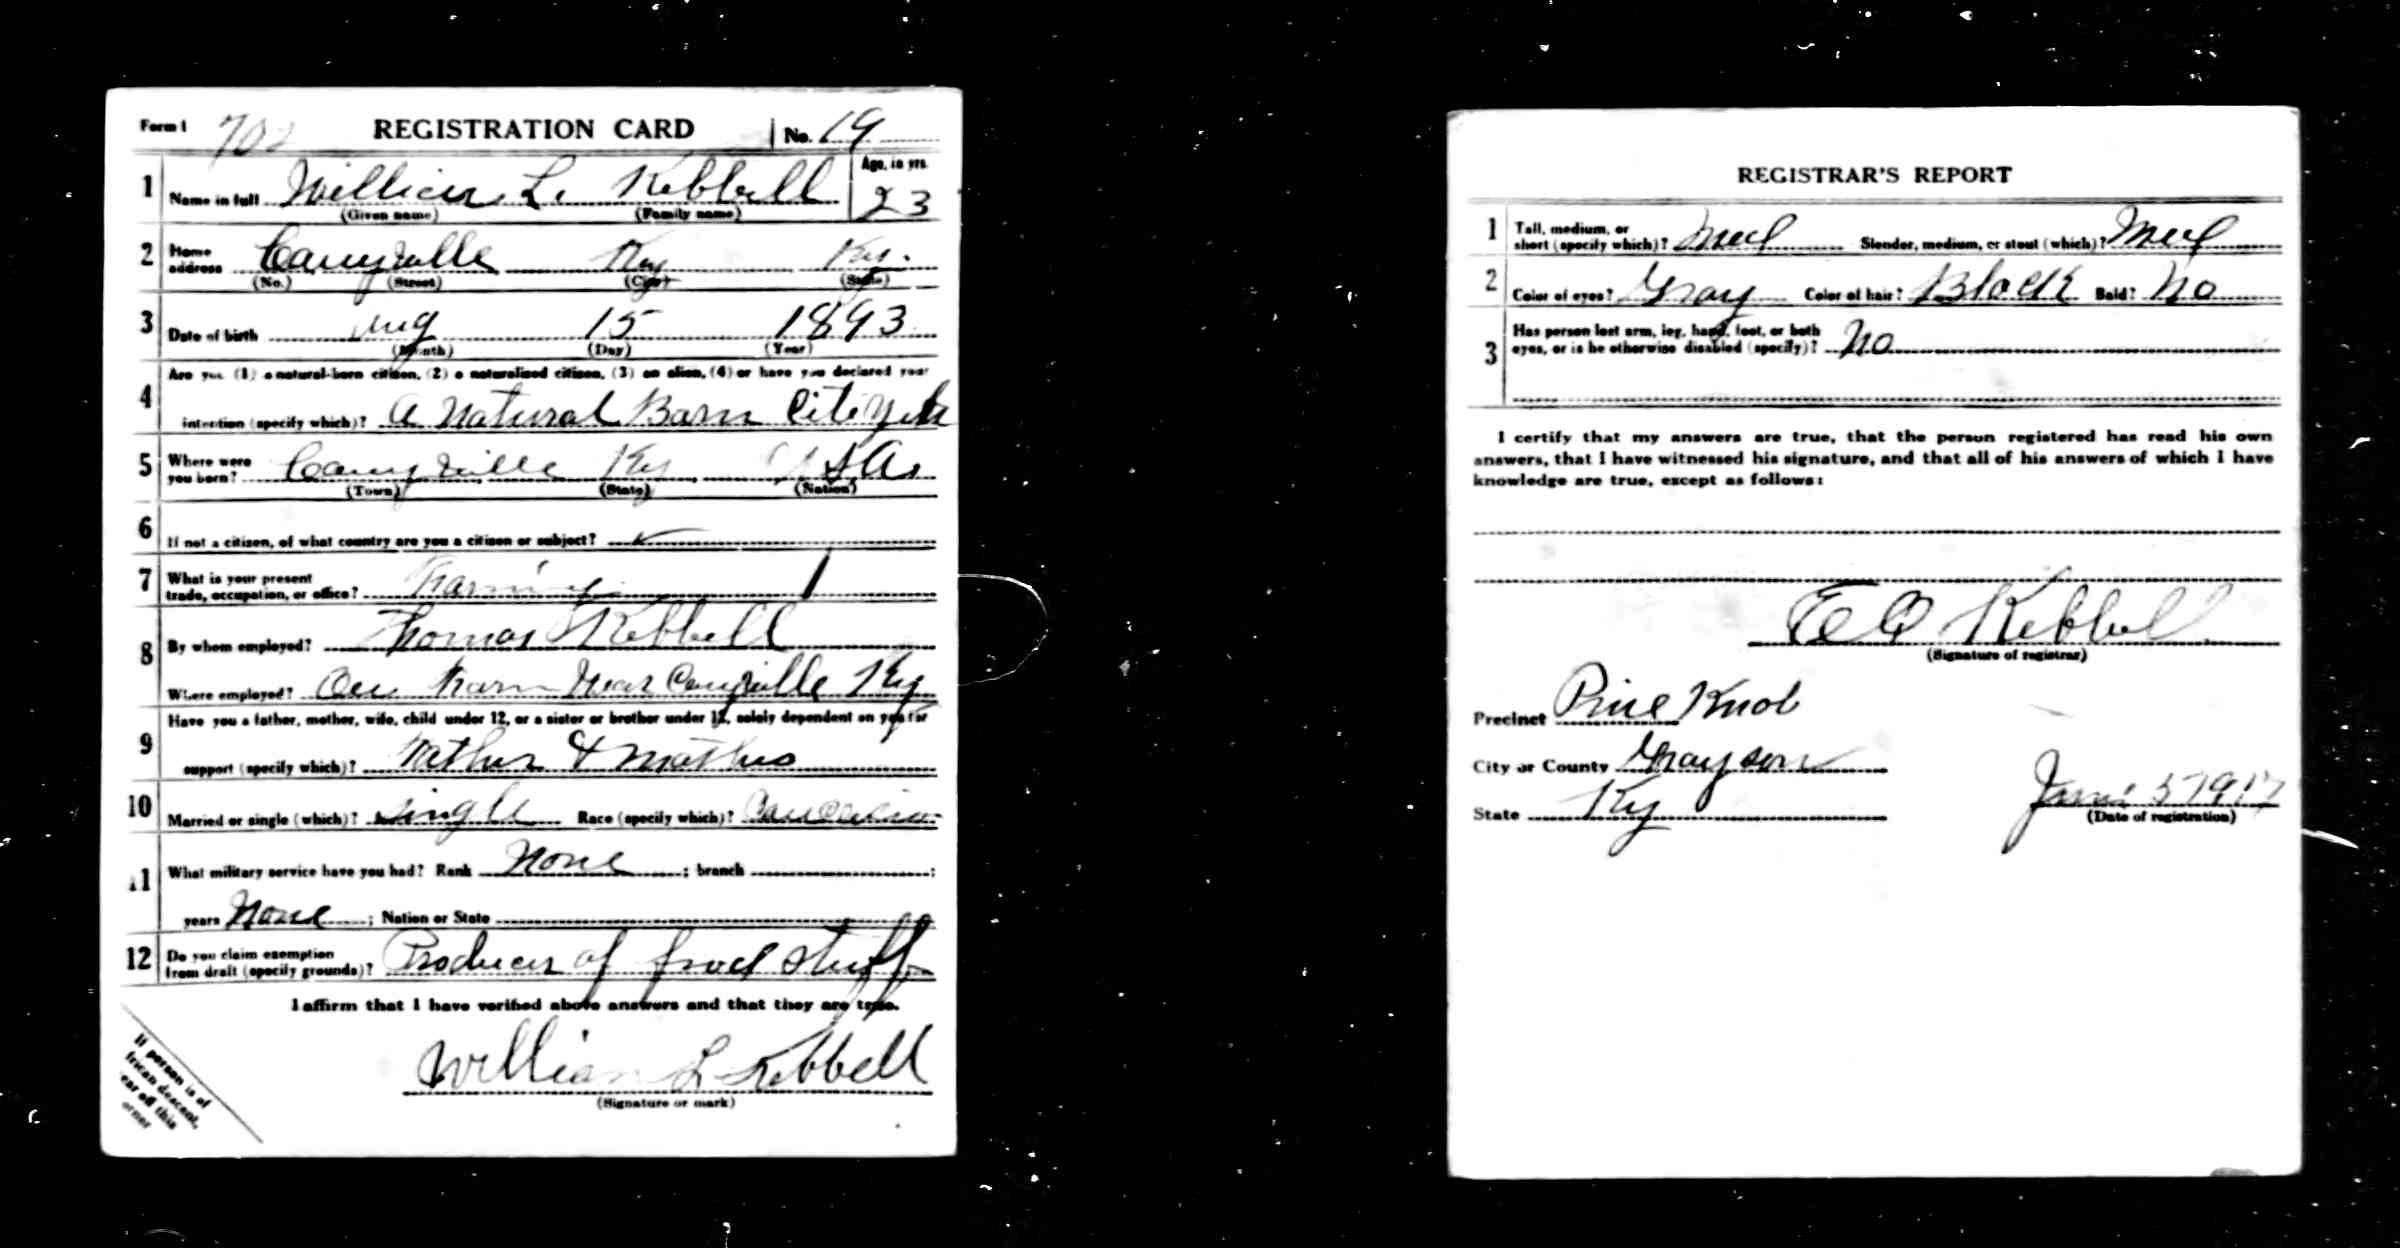 Form 1 REGISTRATION CARD No. 19
1 Name in full William L. Kebbell Age, in yrs. 23
(Given name) (Family name)
2 Home address Caneyville Ky Ky.
(No.) (Street) (City) (State)
3 Date of birth Aug 15 1893
(Month) (Day) (Year)
Are you (1) a natural-born citizen, (2) a naturalized citizen, (3) an alien, (4) or have you declared your
4 intention (specify which)? A Natural Born Citizen
5 Where were you born? Caneyville Ky USA.
(Town) (State) (Nation)
6 If not a citizen, of what country are you a citizen or subject?
7 What is your present trade, occupation, or office? Farming
8 By whom employed? Thomas Kebbell
Where employed? On Farm Near Caneyville Ky
Have you a father, mother, wife, child under 12, or a sister or brother under 12, solely dependent on you for
9 support (specify which)? Father & Mother
10 Married or single (which)? Single Race (specify which)? Caucasian
11 What military service have you had? Rank None ; branch ;
years None ; Nation or State
12 Do you claim exemption from draft (specify grounds)? Producer of food stuff
I affirm that I have verified above answers and that they are true.
William L Kebbell
(Signature or mark)
If person is of
frican descent,
ear off this
orner
REGISTRAR'S REPORT
1 Tall, medium, or short (specify which)? Med Slender, medium, or stout (which)? Med
2 Color of eyes? Gray Color of hair? Black Bald? No
3 Has person lost arm, leg, hand, foot, or both eyes, or is he otherwise disabled (specify)? No
I certify that my answers are true, that the person registered has read his own
answers, that I have witnessed his signature, and that all of his answers of which I have
knowledge are true, except as follows:
Kebbel
(Signature of registrar)
Precinct Pine Knob
City or County Grayson
State Ky
June 5 1917
(Date of registration)